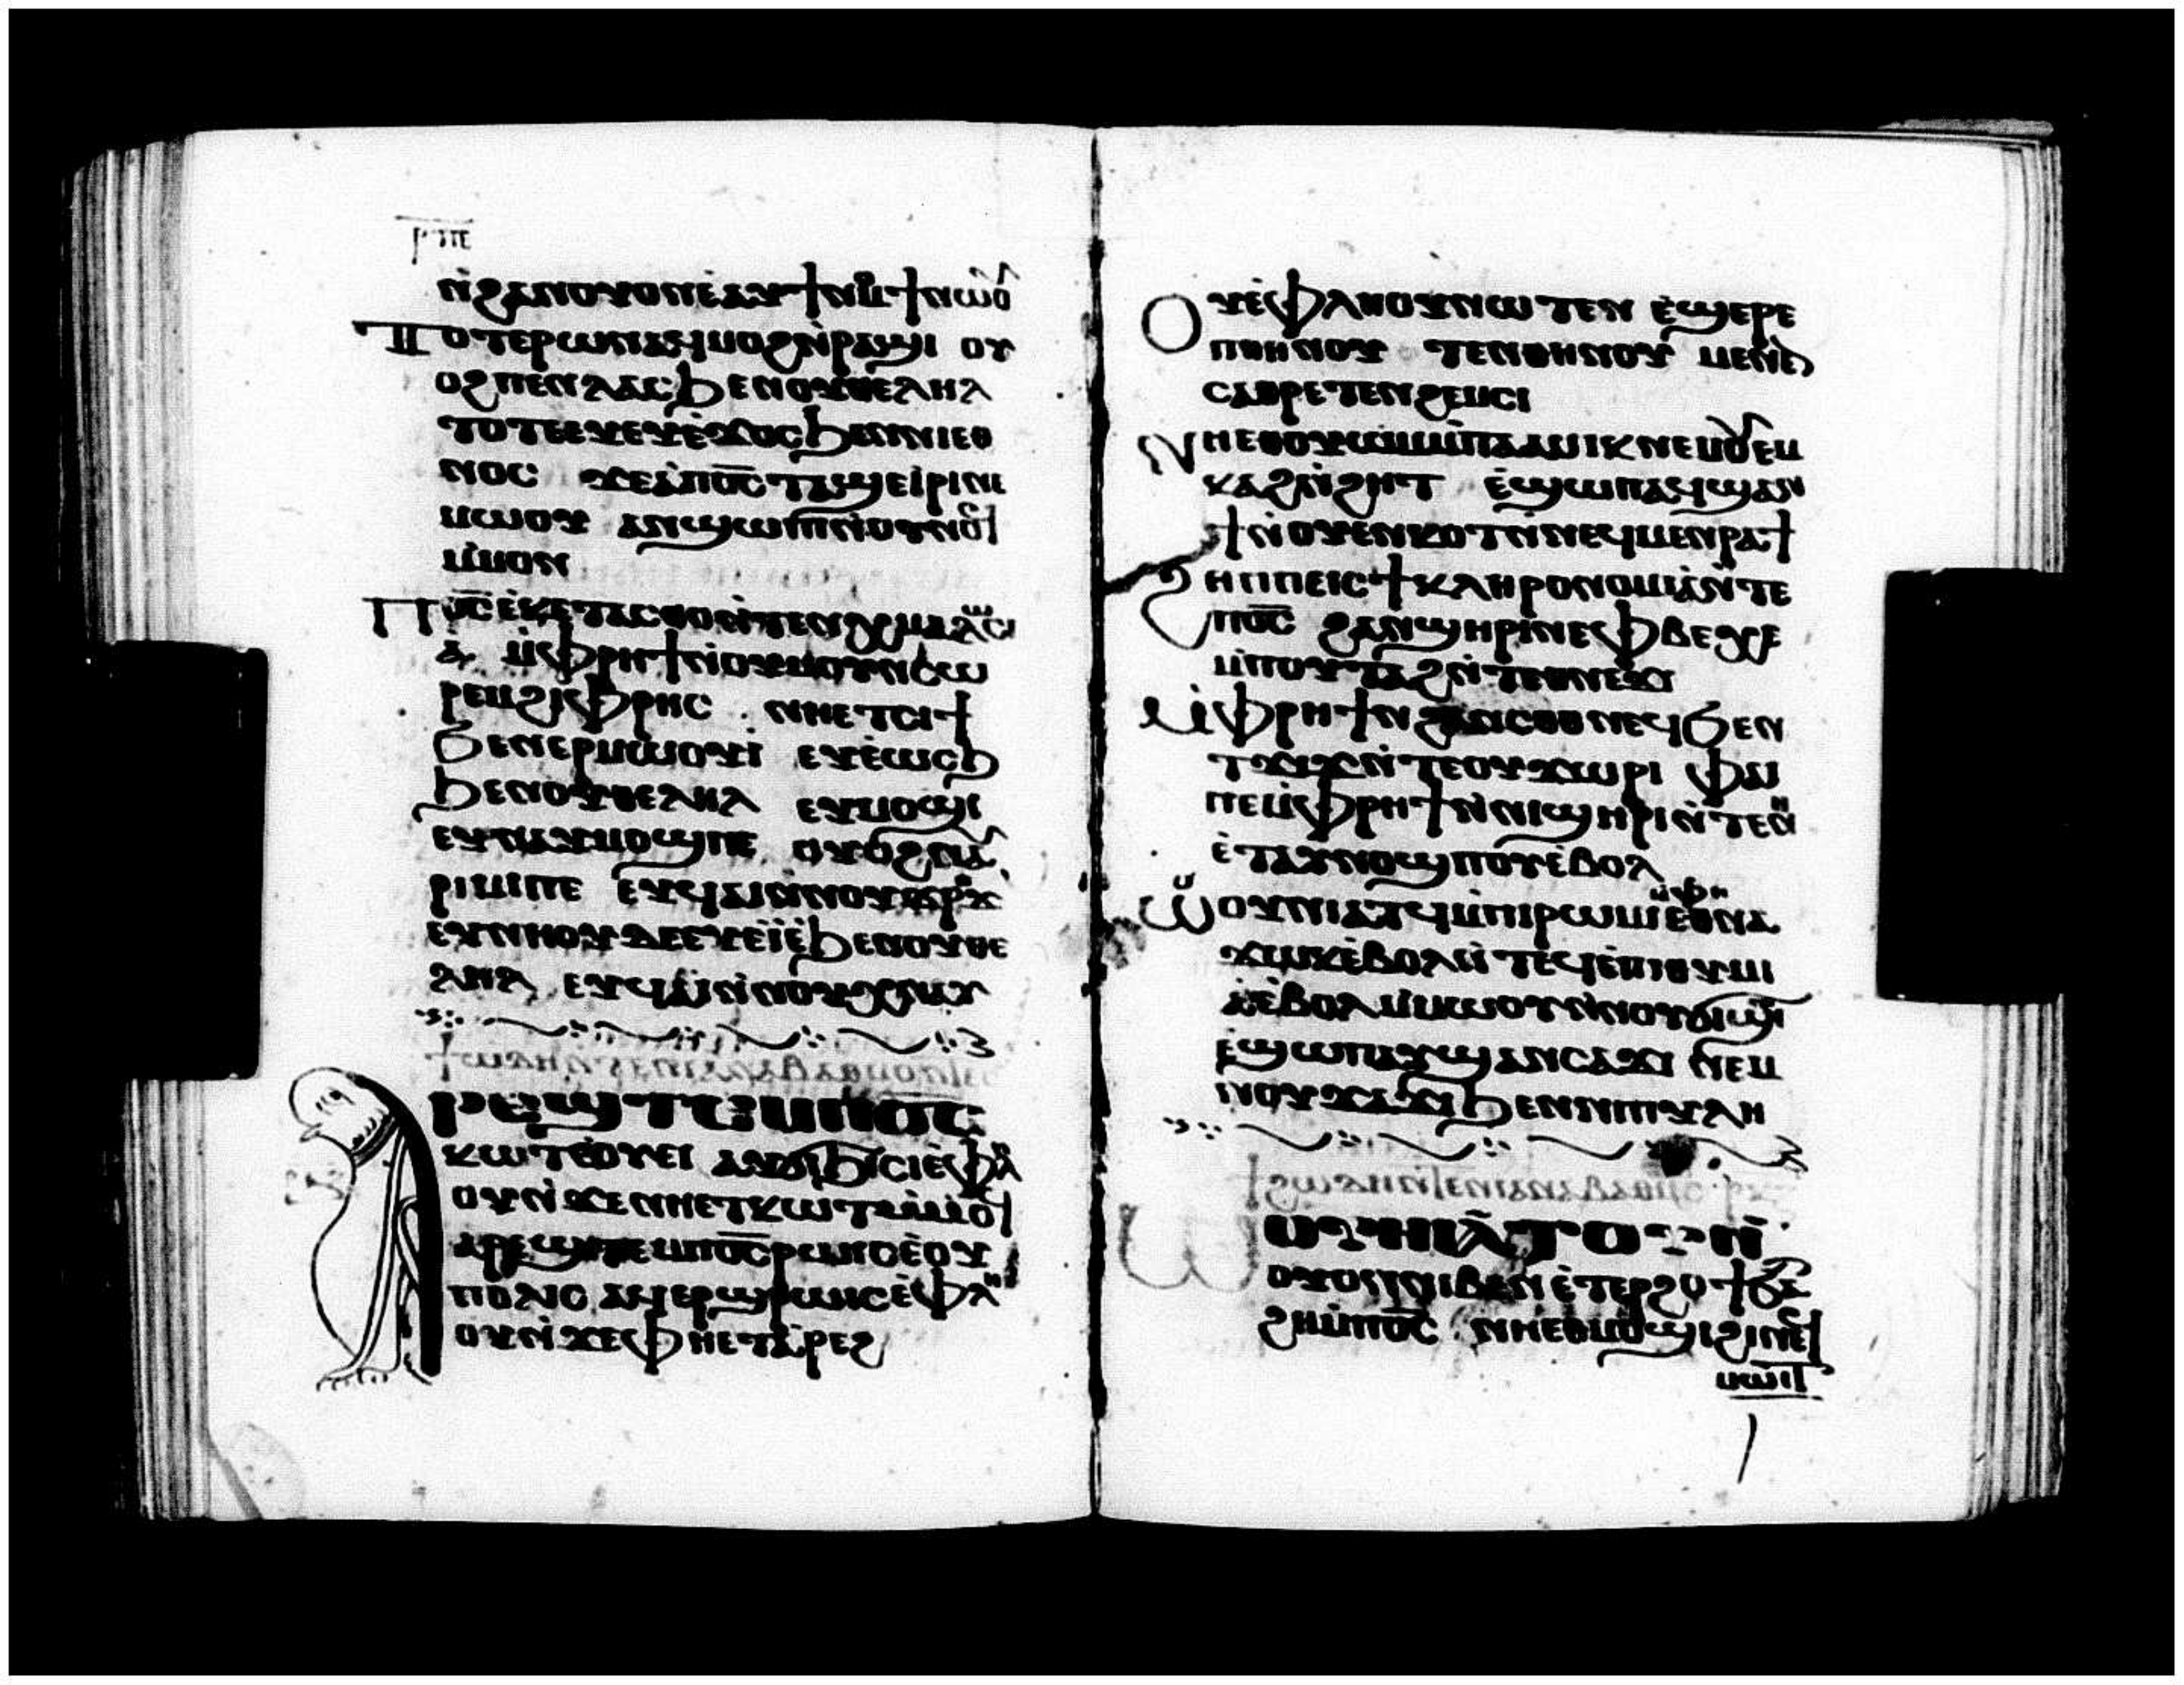 ⲣⲡⲉ
ⲛ̀ϩⲁⲛⲟⲩⲟⲛⲉ̀ⲁⲩϯⲛⲟⲙϯⲛⲱⲟⲩ
ⲧⲟⲧⲉⲣⲱⲛⲁϥⲙⲟϩⲛ̀ⲣⲁϣⲓ ⲟⲩ
ⲟϩⲡⲉⲛⲗⲁⲥϧⲉⲛⲟⲩⲑⲉⲗⲏⲗ
ⲧⲟⲧⲉⲉⲩⲉ̀ϫⲟⲥϧⲉⲛⲛⲓⲉⲑ
ⲛⲟⲥ ϫⲉⲁ̀ⲡⲟ̅ⲥ̅ⲧⲁϣⲉⲓ̀ⲣⲓⲛⲉ
ⲙⲱⲟⲩ ⲁⲛϣⲱⲡⲓⲉⲩⲟⲩⲛⲟϥ
ⲙ̀ⲙⲟⲛ
ⲡⲟ̅ⲥ̅ⲉⲕⲉ̀ⲧⲁⲥⲑⲟⲛ̀ⲧⲉⲛⲉⲭⲙⲁⲗⲱⲥⲓ
ⲁ̀ ⲙ̀ⲫⲣⲏϯⲛ̀ⲟⲩⲙⲟⲩⲛⲥⲱ
ⲣⲉⲙϩⲓⲫⲣⲏⲥ ⲛⲏⲉⲧⲥⲓϯ
ϧⲉⲛⲉⲣⲙⲱⲟⲩⲓ̀ ⲉⲩⲉ̀ⲱⲥϧ
ϧⲉⲛⲟⲩⲑⲉⲗⲏⲗ ⲉⲩⲙⲟϣⲓ
ⲉⲩⲛⲁⲩⲙⲟϣⲓⲡⲉ ⲟⲩⲟϩⲛⲁⲩ
ⲣⲓⲙⲓⲡⲉ ⲉⲩϥⲁⲓⲛ̀ⲛⲟⲩϫⲣⲟϫ
ⲉⲩⲛⲏⲟⲩⲇⲉⲉⲩⲉ̀ⲓ̀ⲉ̀ϧⲉⲛⲟⲩⲑⲉ
ⲗⲏⲗ ⲉⲩϥⲁⲓⲛ̀ⲛⲟⲩⲭⲛⲁⲩ
ⲁⲣⲉϣⲧⲉⲙⲡⲟ̅ⲥ̅
ⲕⲱⲧⲉ̀ⲟⲩⲏⲓ ⲁⲩϭⲓϧⲓⲥⲓⲉ̀ⲫⲗⲏ
ⲟⲩⲛ̀ϫⲉⲛⲏⲉⲧⲕⲱⲧⲙ̀ⲙⲟϥ
ⲁⲣⲉϣⲧⲉⲙⲡⲟ̅ⲥ̅ⲣⲱⲓⲥⲉ̀ⲟⲩ
ⲡⲟⲗⲓⲥ ⲁϥⲉⲣϣⲣⲱⲓⲥⲉ̀ⲫⲗⲏ
ⲟⲩⲛ̀ϫⲉⲫⲏⲉⲧⲁ̀ⲣⲉϩ
ⲟⲩⲉ̀ⲫⲗⲏⲟⲩⲛⲱⲧⲉⲛ ⲉ̀ϣⲉⲣⲉ
ⲡⲑⲏⲛⲟⲩ ⲧⲉⲛⲑⲏⲛⲟⲩ ⲙⲉⲛⲉⲛ
ⲥⲁⲑⲣⲉⲧⲉⲛϩⲉⲙⲥⲓ
ⲛⲏⲉⲑⲟⲩⲱⲙⲙ̀ⲡⲁⲱⲓⲕⲛⲉⲙⲟⲩⲉⲙ
ⲕⲁϩⲛ̀ϩⲏⲧ ⲉ̀ϣⲱⲡⲁϥϣⲁⲛ
ϯⲛ̀ⲟⲩⲉⲛⲕⲟⲧⲛ̀ⲛⲉϥⲙⲉⲛⲣⲁϯ
ϩⲏⲡⲡⲉⲓⲥϯⲕⲗⲏⲣⲟⲛⲟⲙⲓⲁ̀ⲛ̀ⲧⲉ
ⲡⲟ̅ⲥ̅ ϩⲁⲛϣⲏⲣⲓⲛⲉⲫⲃⲉⲭⲉ
ⲙ̀ⲡⲟⲩⲧⲁϩⲛ̀ⲧⲉⲑⲛⲉϫⲓ
ⲙ̀ⲫⲣⲏϯⲛϩⲁⲛⲥⲟⲑⲛⲉϥϧⲉⲛ
ⲧϫⲓϫⲛ̀ⲧⲉⲟⲩϫⲱⲣⲓ ⲫⲁⲓ
ⲡⲉⲙ̀ⲫⲣⲏϯⲛ̀ⲛⲓϣⲏⲣⲓⲛ̀ⲧⲉⲛⲏ
ⲉ̀ⲧⲁⲩⲛⲟϣⲡⲟⲩⲉ̀ⲃⲟⲗ
ⲱⲟⲩⲛⲓⲁⲧϥⲙ̀ⲡⲓⲣⲱⲙⲓⲉⲑⲛⲁ
ϫⲱⲕⲉ̀ⲃⲟⲗⲛ̀ⲧⲉϥⲉ̀ⲡⲓⲑⲩⲙⲓ
ⲁ̀ⲉ̀ⲃⲟⲗⲙ̀ⲙⲱⲟⲩⲛ̀ⲛⲟⲩϭⲓϣⲓⲡⲓ
ⲉ̀ϣⲱⲡⲁⲩϣⲁⲛⲥⲁϫⲓ ⲛⲉⲙ
ⲛⲟⲩϫⲁϫⲓϧⲉⲛⲛⲓⲡⲩⲗⲏ
ⲱⲟⲩⲛⲓⲁⲧⲟⲩⲛ̀
ⲟⲩⲟⲛⲛⲓⲃⲉⲛⲉ̀ⲧⲉⲣϩⲟϯϧⲁ
ϩⲏⲙ̀ⲡⲟ̅ⲥ̅ ⲛⲏⲉⲑⲙⲟϣⲓϩⲓⲛⲉϥ
ⲙⲱⲓⲧ